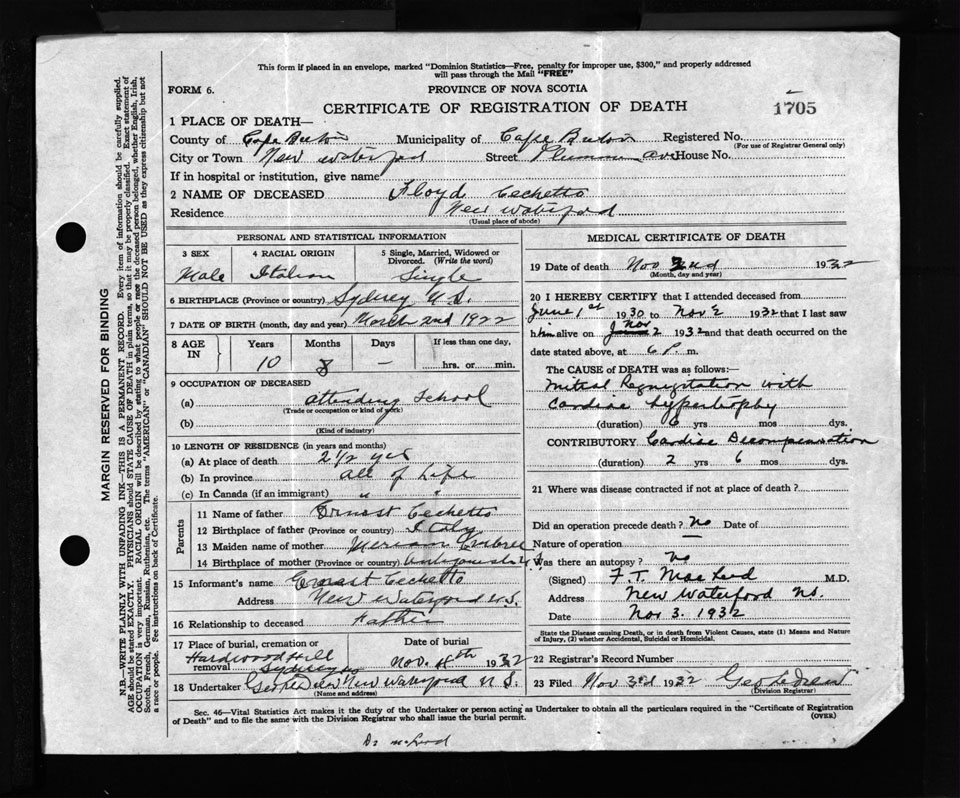 This form if placed in an envelope, marked "Dominion Statistics—Free, penalty for improper use, $300," and properly addressed
will pass through the Mail "FREE"
FORM 6.
PROVINCE OF NOVA SCOTIA
CERTIFICATE OF REGISTRATION OF DEATH
1705
1 PLACE OF DEATH—
County of Cape Breton Municipality of Cape Breton Registered No.
(For use of Registrar General only)
City or Town New Waterford Street Plummer Ave House No.
If in hospital or institution, give name
2 NAME OF DECEASED Floyd Cechetto
Residence New Waterford
(Usual place of abode)
PERSONAL AND STATISTICAL INFORMATION
3 SEX 4 RACIAL ORIGIN 5 Single, Married, Widowed or Divorced. (Write the word)
Male Italian Single
6 BIRTHPLACE (Province or country) Sydney N.S.
7 DATE OF BIRTH (month, day and year) March 2nd 1922
8 AGE IN Years Months Days If less than one day,
10 8 — hrs. or min.
9 OCCUPATION OF DECEASED
(a) attending School
(Trade or occupation or kind of work)
(b)
(Kind of industry)
10 LENGTH OF RESIDENCE (in years and months)
(a) At place of death 2 1/2 yrs
(b) In province all of Life
(c) In Canada (if an immigrant) " "
Parents
11 Name of father Ernast Cechetto
12 Birthplace of father (Province or country) Italy
13 Maiden name of mother Embree
14 Birthplace of mother (Province or country)
15 Informant's name Ernast Cechetto
Address New Waterford N.S.
16 Relationship to deceased Father
17 Place of burial, cremation or removal Date of burial
Hardwood Hill Sydney Nov. 4th 1932
18 Undertaker New Waterford N.S.
(Name and address)
MEDICAL CERTIFICATE OF DEATH
19 Date of death Nov 2nd 1932
(Month, day and year)
20 I HEREBY CERTIFY that I attended deceased from
June 1st 1930 to Nov 2 1932 that I last saw
him alive on Nov 2 1932 and that death occurred on
date stated above, at 6 P. m.
The CAUSE OF DEATH was as follows:—
Mitral Regurgitation with
Cardiac Hypertrophy
(duration) 6 yrs mos dys.
CONTRIBUTORY Cardiac Decompensation
(duration) 2 yrs 6 mos dys.
21 Where was disease contracted if not at place of death?
Did an operation precede death? No Date of
Nature of operation —
Was there an autopsy? No
(Signed) F. T. MacLeod M.D.
Address New Waterford NS.
Date Nov 3. 1932
State the Disease causing Death, or in death from Violent Causes, state (1) Means and Nature
of Injury, (2) whether Accidental, Suicidal or Homicidal.
22 Registrar's Record Number
23 Filed Nov 3rd 1932
(Division Registrar)
Sec. 46—Vital Statistics Act makes it the duty of the Undertaker or person acting as Undertaker to obtain all the particulars required in the "Certificate of Registration
of Death" and to file the same with the Division Registrar who shall issue the burial permit.
(OVER)
Dr McLeod
MARGIN RESERVED FOR BINDING
N.B.—WRITE PLAINLY WITH UNFADING INK—THIS IS A PERMANENT RECORD. Every item of information should be carefully supplied.
AGE should be stated EXACTLY. PHYSICIANS should STATE CAUSE OF DEATH in plain terms, so that it may be properly classified. Exact statement of
OCCUPATION is very important. RACIAL ORIGIN will be described by stating to what people or race the deceased person belonged, whether English, Irish,
Scotch, French, German, Russian, Ruthenian, etc. The terms "AMERICAN" or "CANADIAN" SHOULD NOT BE USED as they express citizenship but not
a race or people. See instructions on back of Certificate.